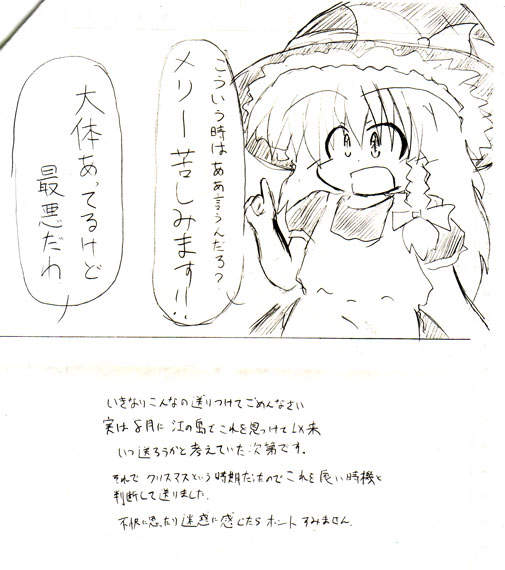 こういう時はああ言うんだろ?
メリー苦しみます!!
大体あってるけど
最悪だわ
いきなりこんなの送りつけてごめんなさい
実は8月に江の島でこれを思っけて以来
いつ送ろうかと考えていた次第です.
それでクリスマスという時期だったのでこれを良い時機と
判断して送りました.
不快に思ったり迷惑に感じたらホントすみません.